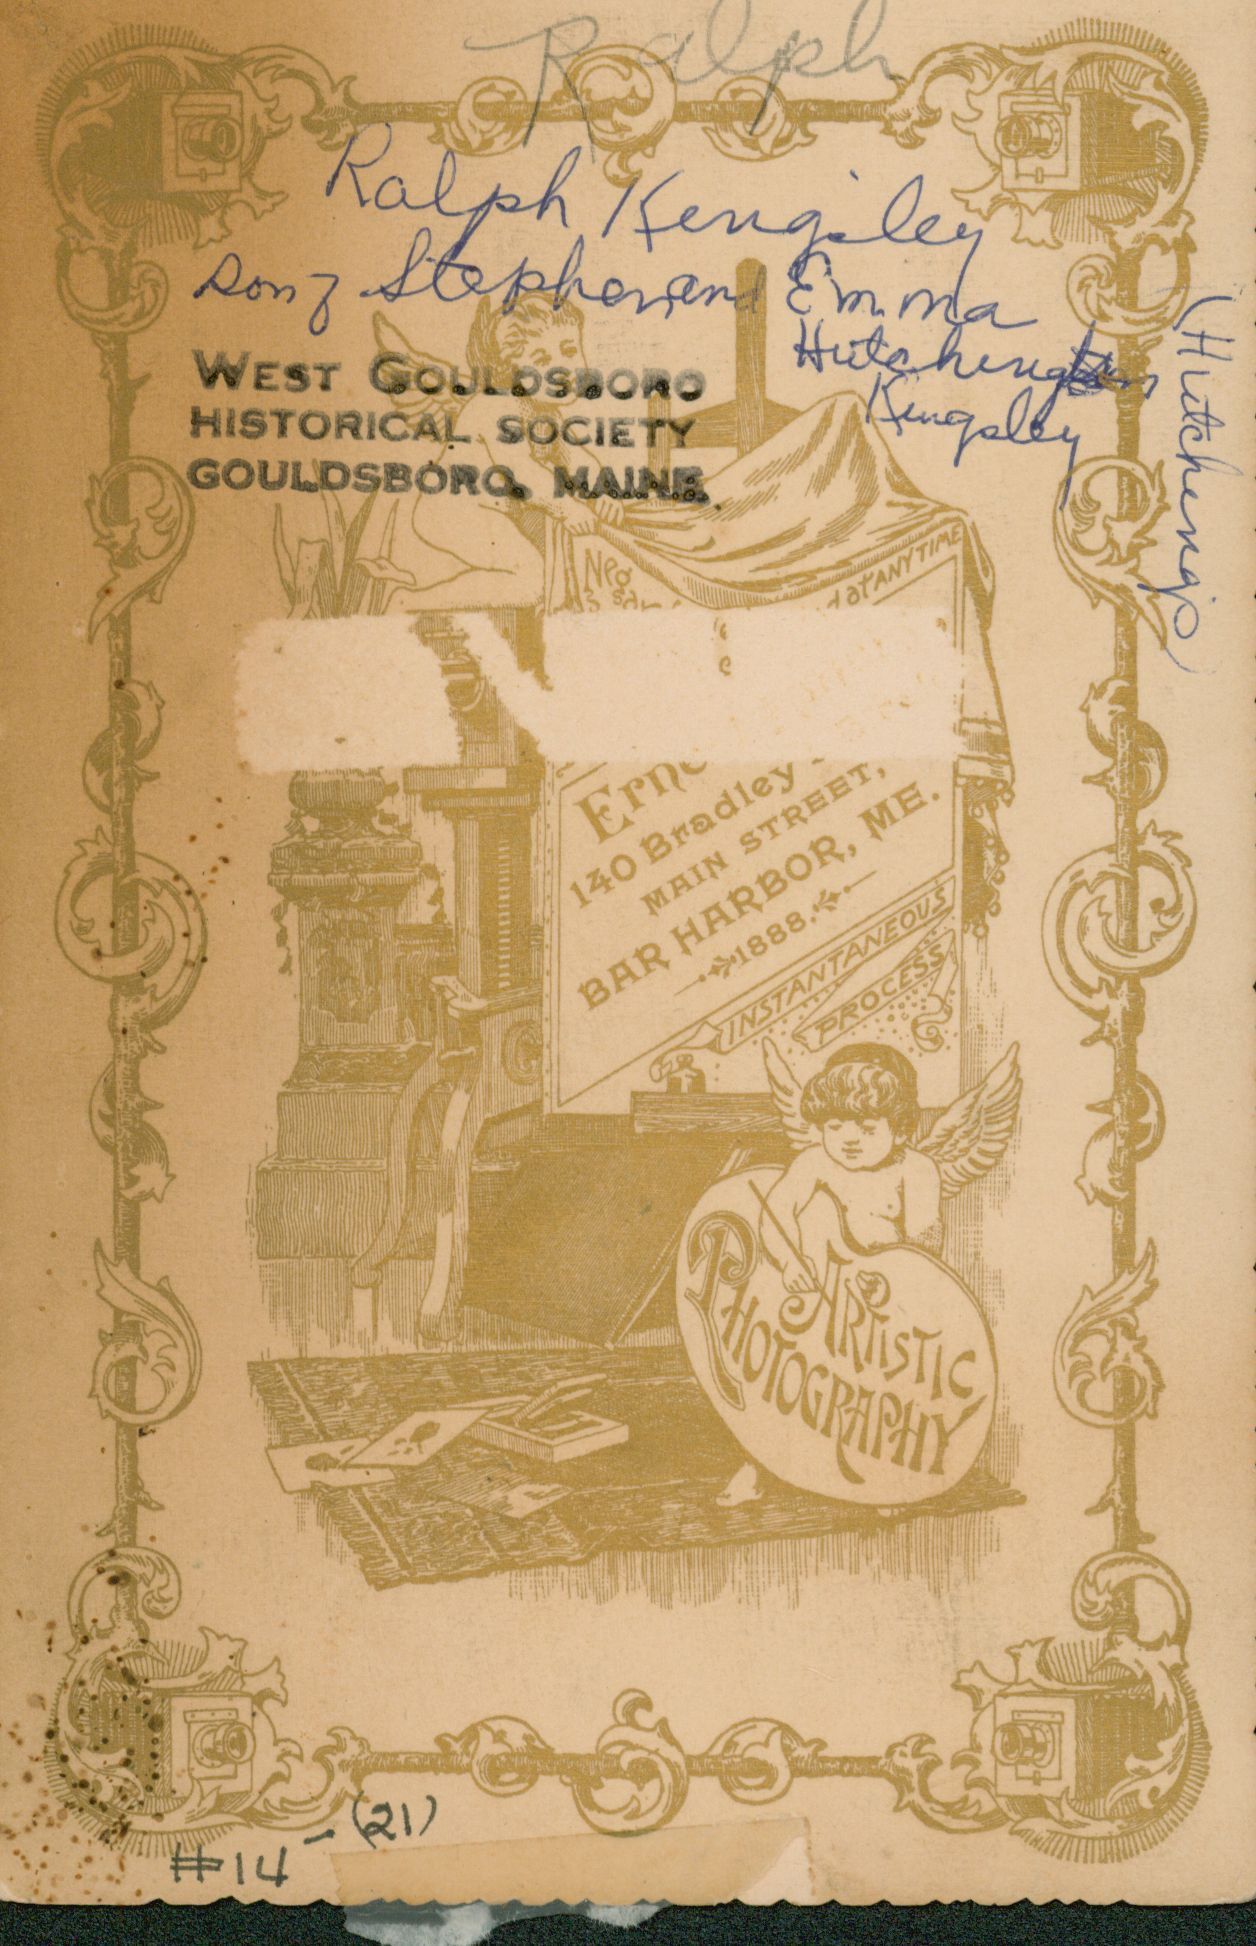 Ralph
Ralph Kengsley
son of Stephen and Emma
Hutchings
Kingsley
(Hutchings)
WEST GOULDSBORO
HISTORICAL SOCIETY
GOULDSBORO, MAINE.
Neg
at ANY TIME
Erne
140 Bradley
MAIN STREET,
BAR HARBOR, ME.
1888.
INSTANTANEOUS
PROCESS
ARTISTIC
PHOTOGRAPHY
#14 - (21)